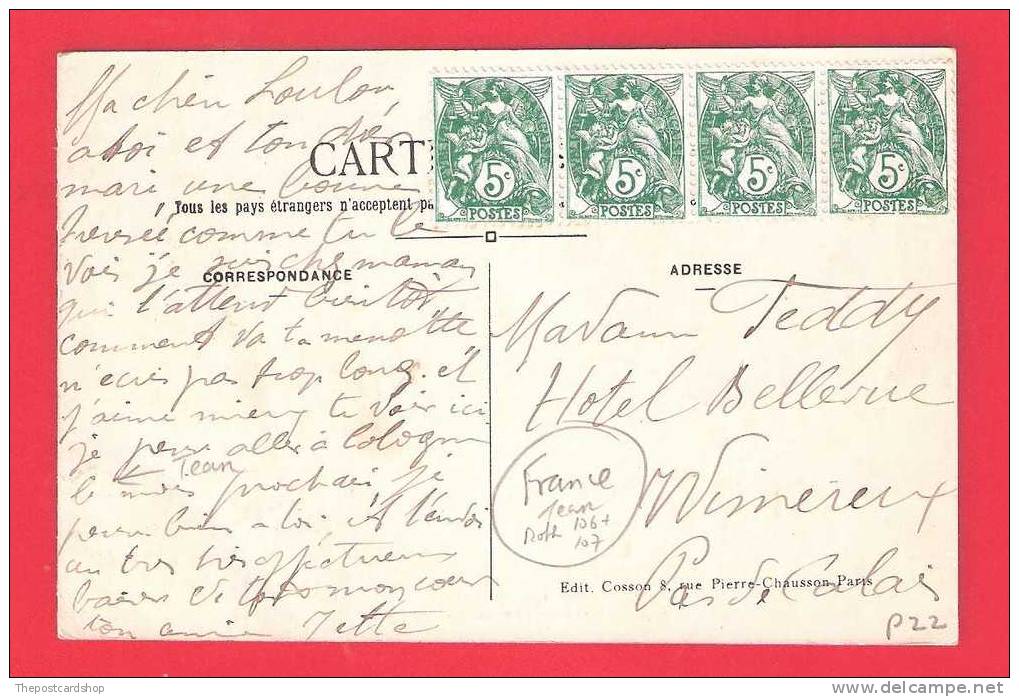 Ma chère Loulou,
a toi et ton cher
mari une bonne
comme tu le
vois je suis chez maman
qui l'attend bientôt
comment va ta menotte
n'écris pas trop long et
j'aime mieux te voir ici
je peux aller à Cologne
Jean
le mois prochain je
pense bien a toi, et t'envoi
un très très affectueux
baiser de tout mon coeur
ton amie Jette
CART
Tous les pays étrangers n'acceptent pa
CORRESPONDANCE
5c 5c 5c 5c
POSTES POSTES POSTES POSTES
ADRESSE
Madame Teddy
Hotel Bellevue
Wimereux
Pas de Calais
France
Jean
Roth 106+
107
Edit. Cosson 8, rue Pierre-Chausson Paris
P22
Thepostcardshop
www.delcampe.net